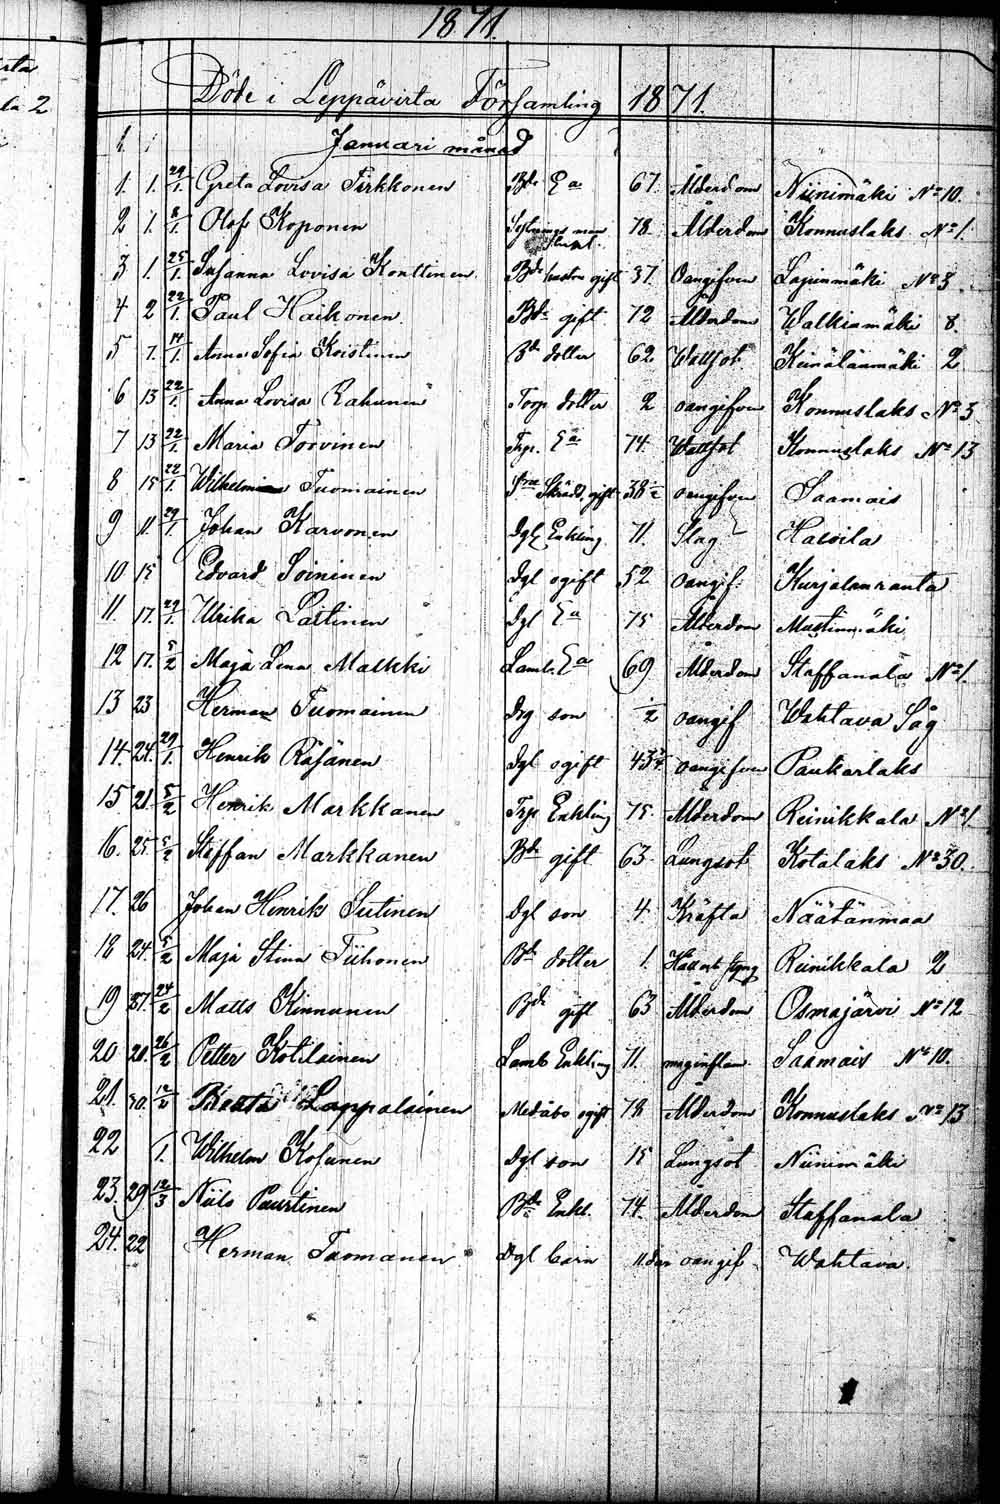 1871.
Döde i Leppävirta Församling 1871.
Januari månad
1. 1. 29/1. Greta Lovisa Pirkkonen Bde Ea 67. Ålderdom Niinimäki No 10.
2 1. 8/1. Olof Koponen 78 Ålderdom Konnuslaks No 1.
3 1. 25/1. Susanna Lovisa Konttinen Bde hustru gift 37. Oangifven Lapinmäki No 3
4 2 22/1. Paul Haikonen. Bde gift 72 Ålderdom Walkiamäki 8.
5 7. 14/1. Anna Sofia Koistinen Bde dotter 62. Wattsot. Keinälänmäki 2
6 13 22/1. Anna Lovisa Rahunen Torp dotter 2 oangifven Konnuslaks No 3
7 13 22/1. Maria Torvinen Trp. Ea 74. Wattsot Konnuslaks No 13
8 15 22/1. Wilhelmina Tuomainen Skrädd. gift 38 oangifven Saamais
9 11. 29/1. Johan Karvonen Dgl Enkling 71. Slag Halsila
10 15 Edvard Soininen Dgl ogift 52 oangif. Kurjalanranta
11. 17. 29/1. Ulrika Laitinen Dgl Ea 75 Ålderdom Mustinmäki
12 17. 5/2 Maja Lena Malkki Lamb. Ea 69 Ålderdom Staffanala No 1.
13 23 Herman Tuomainen Drg son 1/2 oangif Wahtava Såg
14. 24. 29/1. Henrik Räsänen Dgl ogift 43 oangifven Paukarlaks
15 21. 5/2 Henrik Markkanen Trp Enkling 75. Ålderdom Reinikkala No 1.
16. 25. 5/2 Staffan Markkanen Bde gift 63. Lungsot Kotalaks No 30.
17. 26 Johan Henrik Sutinen Dgl son 4 Kräfta Näätänmaa
18 24. 5/2 Maja Stina Tiihonen Bde dotter 1. Håll och styng Reinikkala 2
19 27. 24/2 Matts Kinnunen Bde gift 63 Ålderdom Osmajärvi No 12
20 20. 26/2 Petter Kotilainen Lamb Enkling 71. maginflam Saamais No 10.
21. 30. 12/2 Beata Lappalainen ogift 78 Ålderdom Konnuslaks No 13
22 1. Wilhelm Kosunen Dgl son 15 Lungsot Niinimäki
23. 29 12/3 Niilo Paurtinen Bde Enkl. 74. Ålderdom Staffanala
24. 22 Herman Tuomanen Dgl barn 11. dar oangif Wahtava.